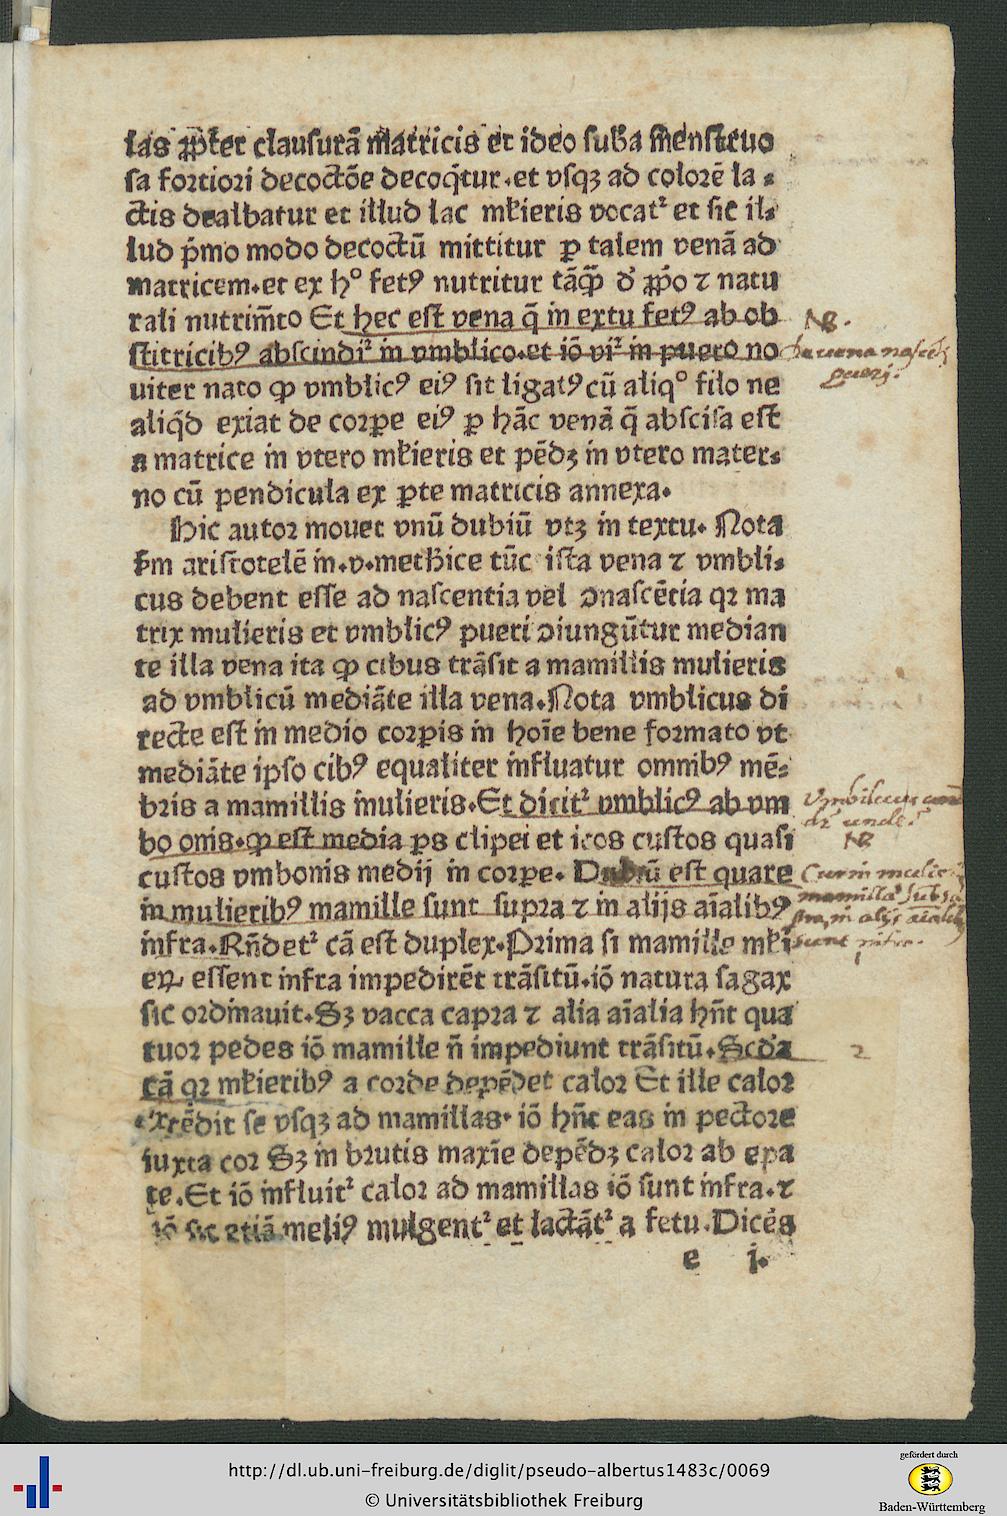 las ꝓpter clausurã matricis et ideo suba menstruo
sa fortiori decoctõe decoq̃tur.et vsqꝫ ad colorẽ la⸗
ctis dealbatur et illud lac mľieris vocat᷑ et sic il⸗
lud p̃mo modo decoctũ mittitur ꝑ talem venã ad
matricem.et ex hº fetꝯ nutritur tãꝙ̃ d̓ ꝓpo ⁊ natu
rali nutrim̃to Et hec est vena q̃ in extu fetꝯ ab ob
stitricibꝯ abscindi᷑ in vmblico.et iõ vi᷑ in puero no
uiter nato ꝙ vmblicꝯ eiꝯ sit ligatꝯ cũ aliqº filo ne
aliq̃d exiat de corpe eiꝯ ꝑ hãc venã q̃ abscisa est
a matrice in vtero mľieris et pẽdꝫ in vtero mater⸗
no cũ pendicula ex ꝑte matricis annexa.
Hic autor mouet vnũ dubiũ vtꝫ in textu. Nota
ẜm aristotelẽ in.v.meth̃ice tũc ista vena ⁊ vmbli⸗
cus debent esse ad nascentia vel ↄnascẽtia qꝛ ma
trix mulieris et vmblicꝯ pueri ↄiungũtur median
te illa vena ita ꝙ cibus trãsit a mamillis mulieris
ad vmblicũ mediãte illa vena.Nota vmblicus di
recte est in medio corꝑis in hoĩe bene formato vt
mediãte ipso cibꝯ equaliter influatur omnibꝯ mẽ⸗
bris a mamillis mulieris.Et dicit᷑ vmblicꝯ ab vm
bo onis.ꝙ est media ps clipei et icos custos quasi
custos vmbonis medij in corꝑe. Dubiũ est quare
in mulieribꝯ mamille sunt supra ⁊ in alijs aĩalibꝯ
infra.Rñdet᷑ cã est duplex.Prima si mamille mľi
eꝝ essent infra impedirẽt trãsitũ.iõ natura sagax
sic ordinauit.Sꝫ vacca capra ⁊ alia aĩalia hñt qua
tuor pedes iõ mamille ñ impediunt trãsitũ.Scd̃a
cã qꝛ mľieribꝯ a corde depẽdet calor Et ille calor
extẽdit se vsqꝫ ad mamillas. iõ hñt eas in pectore
iuxta cor Sꝫ in brutis maxĩe depẽdꝫ calor ab epa
te.Et iõ influit᷑ calor ad mamillas iõ sunt infra.⁊
iõ sic etiã meliꝯ mulgent᷑ et lactãt᷑ a fetu.Dicẽs
e j.
NB.
De uena nascẽ
pueri.
Vmbilicus
dr̃ unde?
NB
Cur in mulie
mamillæ sub
in alijs aĩalib
sunt infra.
1
2
http://dl.ub.uni-freiburg.de/diglit/pseudo-albertus1483c/0069
© Universitätsbibliothek Freiburg
gefördert durch
Baden-Württemberg